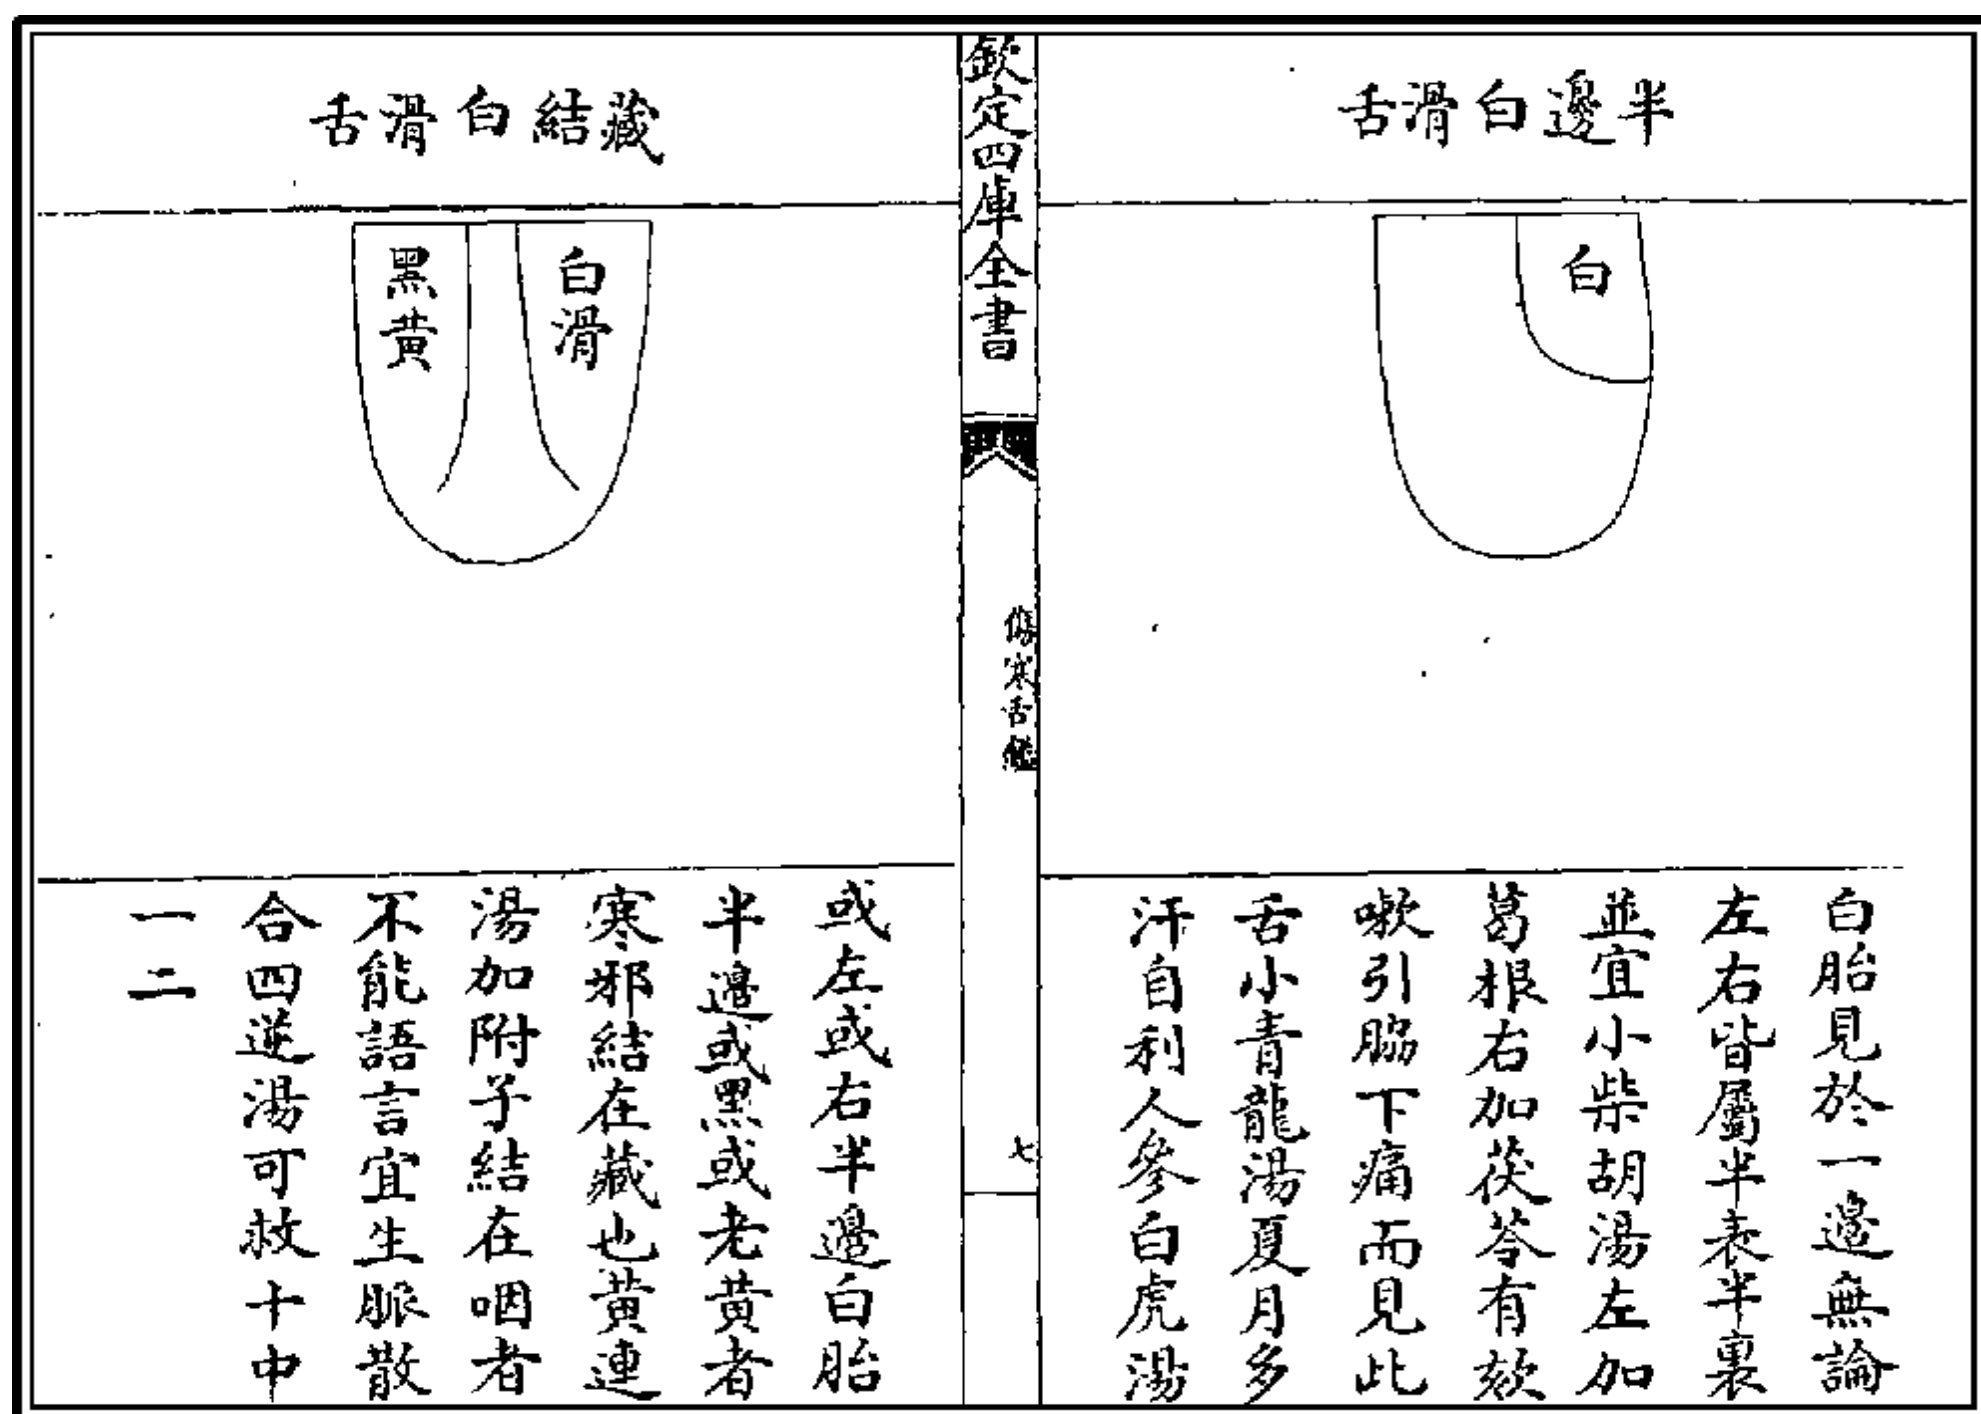 半邊白滑舌
白
白胎見於一邊無論
左右皆屬半表半裏
並宜小柴胡湯左加
葛根右加茯苓有欬
嗽引脇下痛而見此
舌小青龍湯夏月多
汗自利人參白虎湯
欽定四庫全書
傷寒舌鑑
七
藏結白滑舌
白滑
黑黃
或左或右半邊白胎
半邊或黑或老黃者
寒邪結在藏也黃連
湯加附子結在咽者
不能語言宜生脈散
合四逆湯可救十中
一二